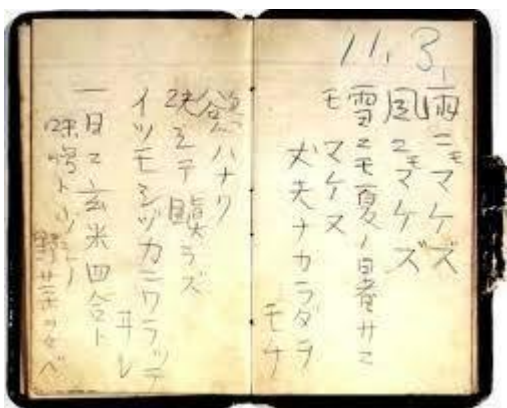 11. 3,
雨ニモマケズ
風ニモマケズ
雪ニモ夏ノ暑サニ
モ マケヌ
丈夫ナカラダヲ
モチ
慾ハナク
決シテ瞋ラズ
イツモシヅカニワラッテ
ヰル
一日ニ玄米四合ト
味噌ト少シノ
野菜ヲタベ